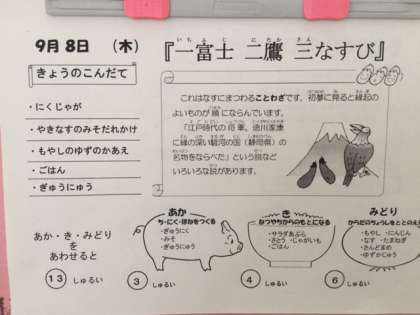 9月8日 (木)
『一富士 二鷹 三なすび』
いち ふ じ に たか さん
きょうのこんだて
・にくじゃが
・やきなすのみそだれかけ
・もやしのゆずのかあえ
・ごはん
・ぎゅうにゅう
これはなすにまつわることわざです。初夢に見ると縁起の
よいものが順にならんでいます。
「江戸時代の将軍、徳川家康
に縁の深い駿河の国（静岡県）の
名物をならべた」という説など
いろいろな説があります。
あか・き・みどり
を
あわせると
13 しゅるい
あか
ち・にく・ほねをつくる
・ぎゅうにく
・みそ
・ぎゅうにゅう
3 しゅるい
き
ねつやちからのもとになる
・サラダあぶら
・さとう ・じゃがいも
・ごはん
4 しゅるい
みどり
からだのちょうしをととのえ
・もやし ・にんじん
・なす ・たまねぎ
・さんどまめ
・ゆずかじゅう
6 しゅるい